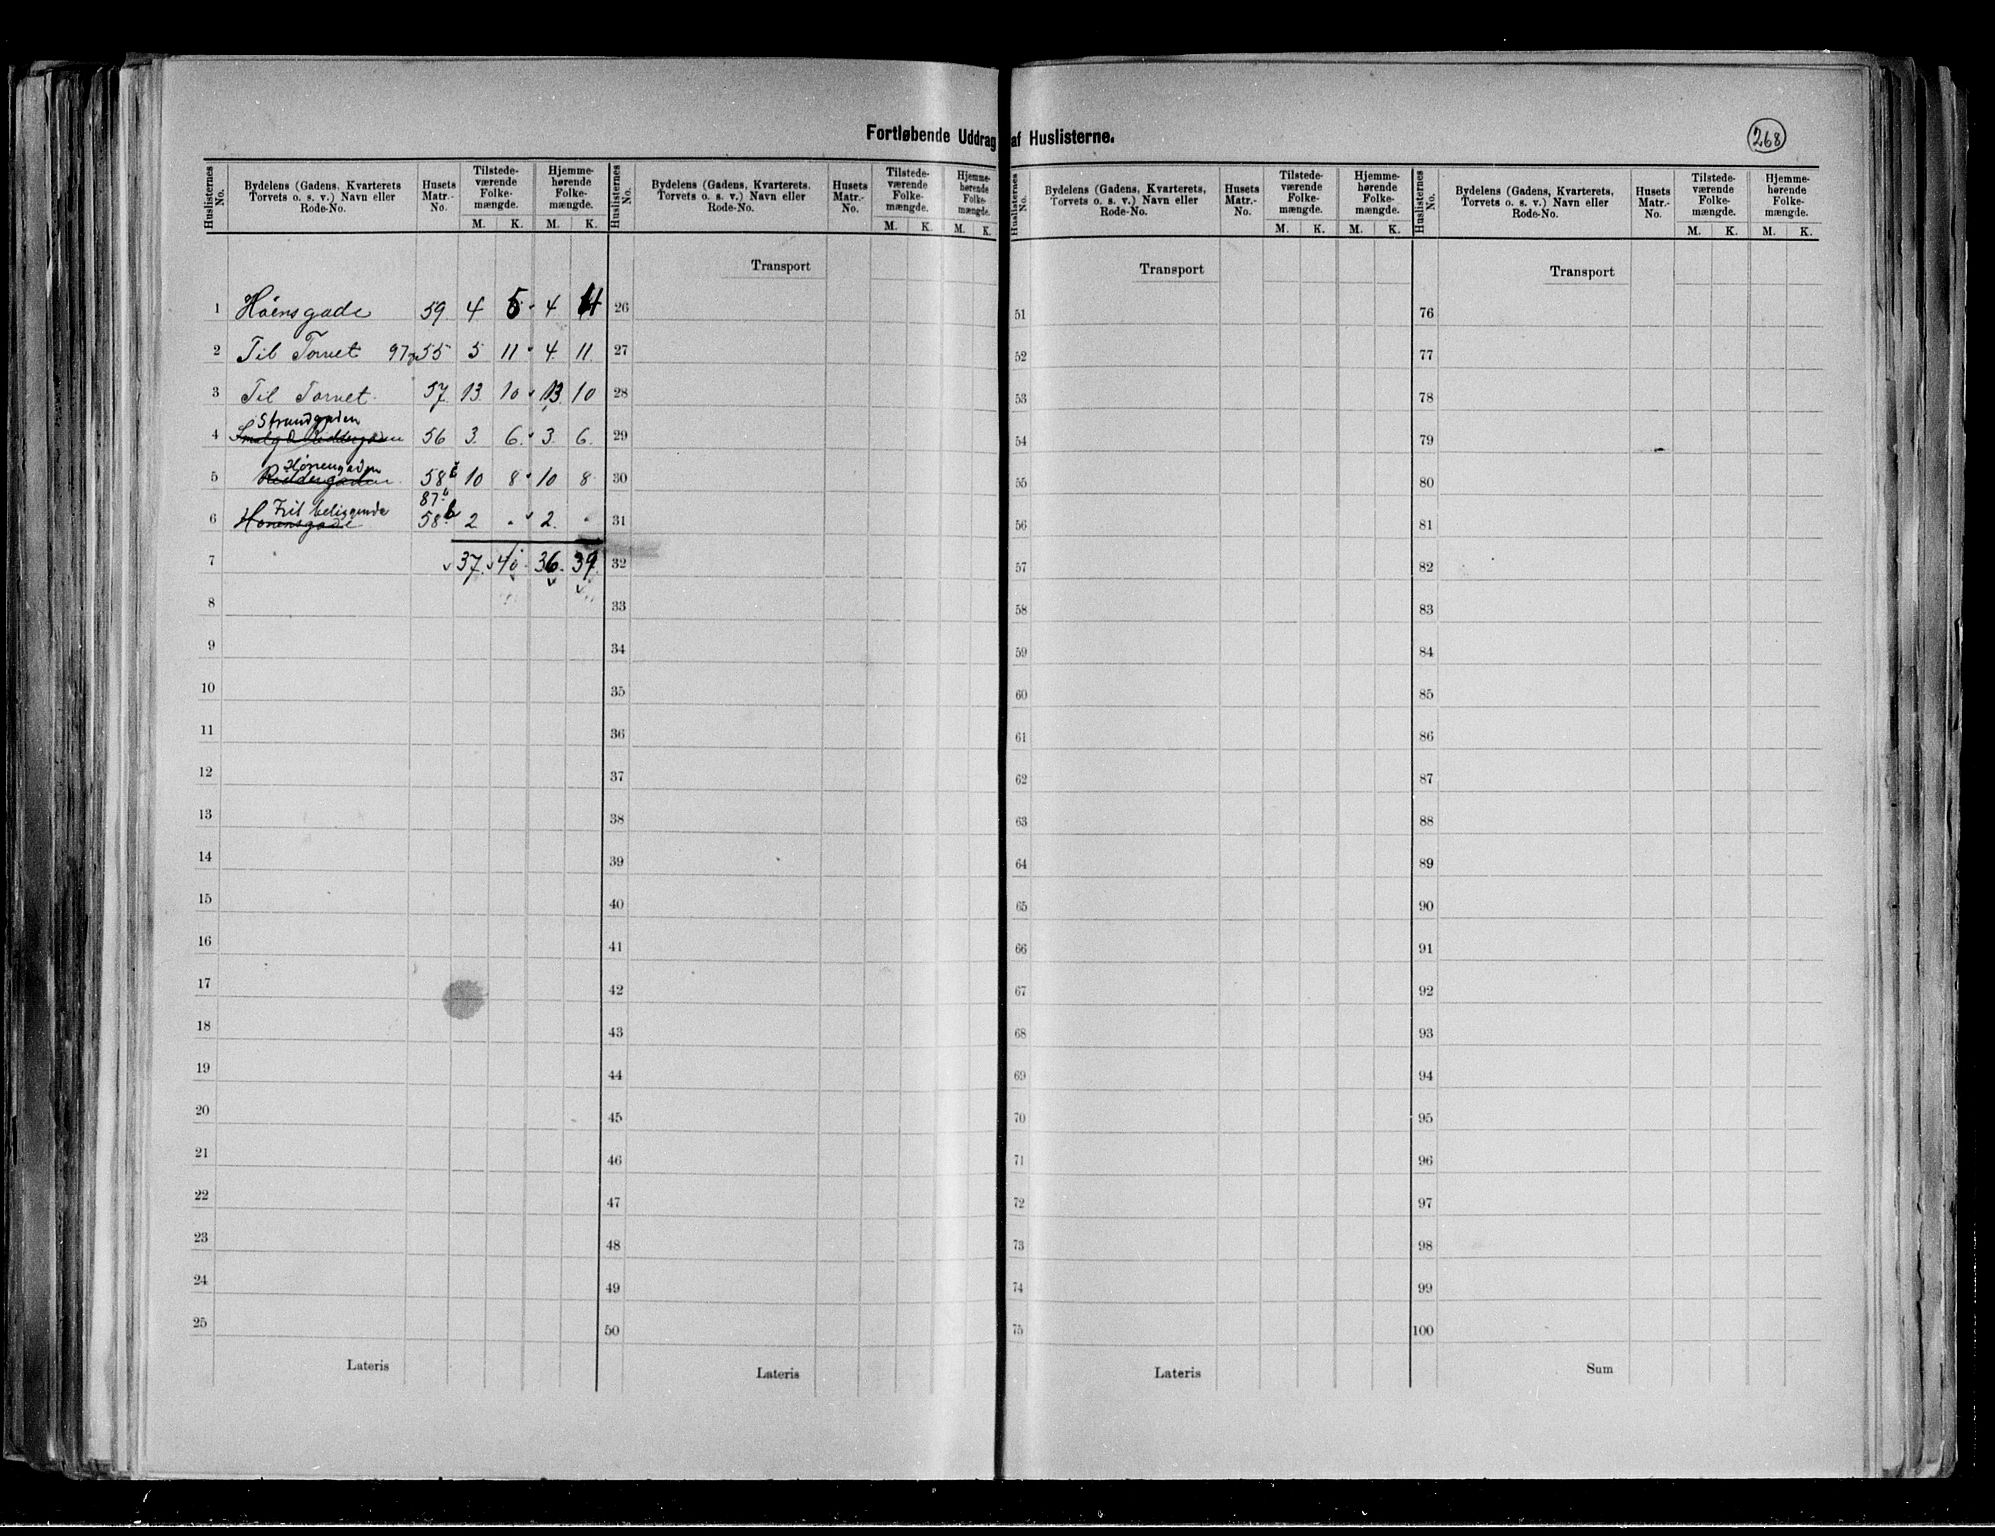 Fortløbende Uddrag af Huslisterne.
268
Huslisternes No. Bydelens (Gadens, Kvarterets Torvets o. s. v.) Navn eller Rode-No. Husets Matr.-No. Tilstedeværende Folkemængde. M. K. Hjemmehørende Folkemængde. M. K.
Huslisternes No. Bydelens (Gadens, Kvarterets, Torvets o. s. v.) Navn eller Rode-No. Husets Matr.-No. Tilstedeværende Folkemængde. M. K. Hjemmehørende Folkemængde. M. K.
Huslisternes No. Bydelens (Gadens, Kvarterets, Torvets o. s. v.) Navn eller Rode-No. Husets Matr.-No. Tilstedeværende Folkemængde. M. K. Hjemmehørende Folkemængde. M. K.
Huslisternes No. Bydelens (Gadens, Kvarterets, Torvets o. s. v.) Navn eller Rode-No. Husets Matr.-No. Tilstedeværende Folkemængde. M. K. Hjemmehørende Folkemængde. M. K.
Transport
Transport
Transport
1 Höensgade 59 4 5 4 4
2 Til Torvet 55 5 11 4 11
3 Til Torvet 57 13 10 13 10
Strandgaden
4 56 3 6 3 6
5 58 10 8 10 8
87
6 Frit beliggende 58 b 2 2
7 37 40 36 39
8
9
10
11
12
13
14
15
16
17
18
19
20
21
22
23
24
25
Lateris
26
27
28
29
30
31
32
33
34
35
36
37
38
39
40
41
42
43
44
45
46
47
48
49
50
Lateris
51
52
53
54
55
56
57
58
59
60
61
62
63
64
65
66
67
68
69
70
71
72
73
74
75
Lateris
76
77
78
79
80
81
82
83
84
85
86
87
88
89
90
91
92
93
94
95
96
97
98
99
100
Sum